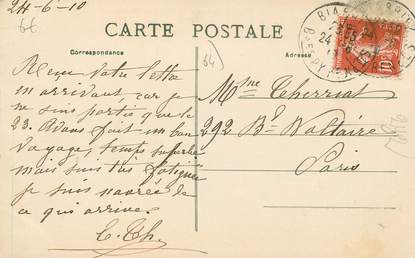 24-6-10
64
CARTE POSTALE
Correspondance
Adresse
64
Reçu votre lettre
en arrivant, car je
ne suis partie que le
23. Avons fait un bon
voyage, temps superbe
mais suis très fatiguée
je suis navrée de
ce qui arrive.
C. Th.
Mme Therriat
292 Bd Voltaire
Paris
BIARRITZ
24
10